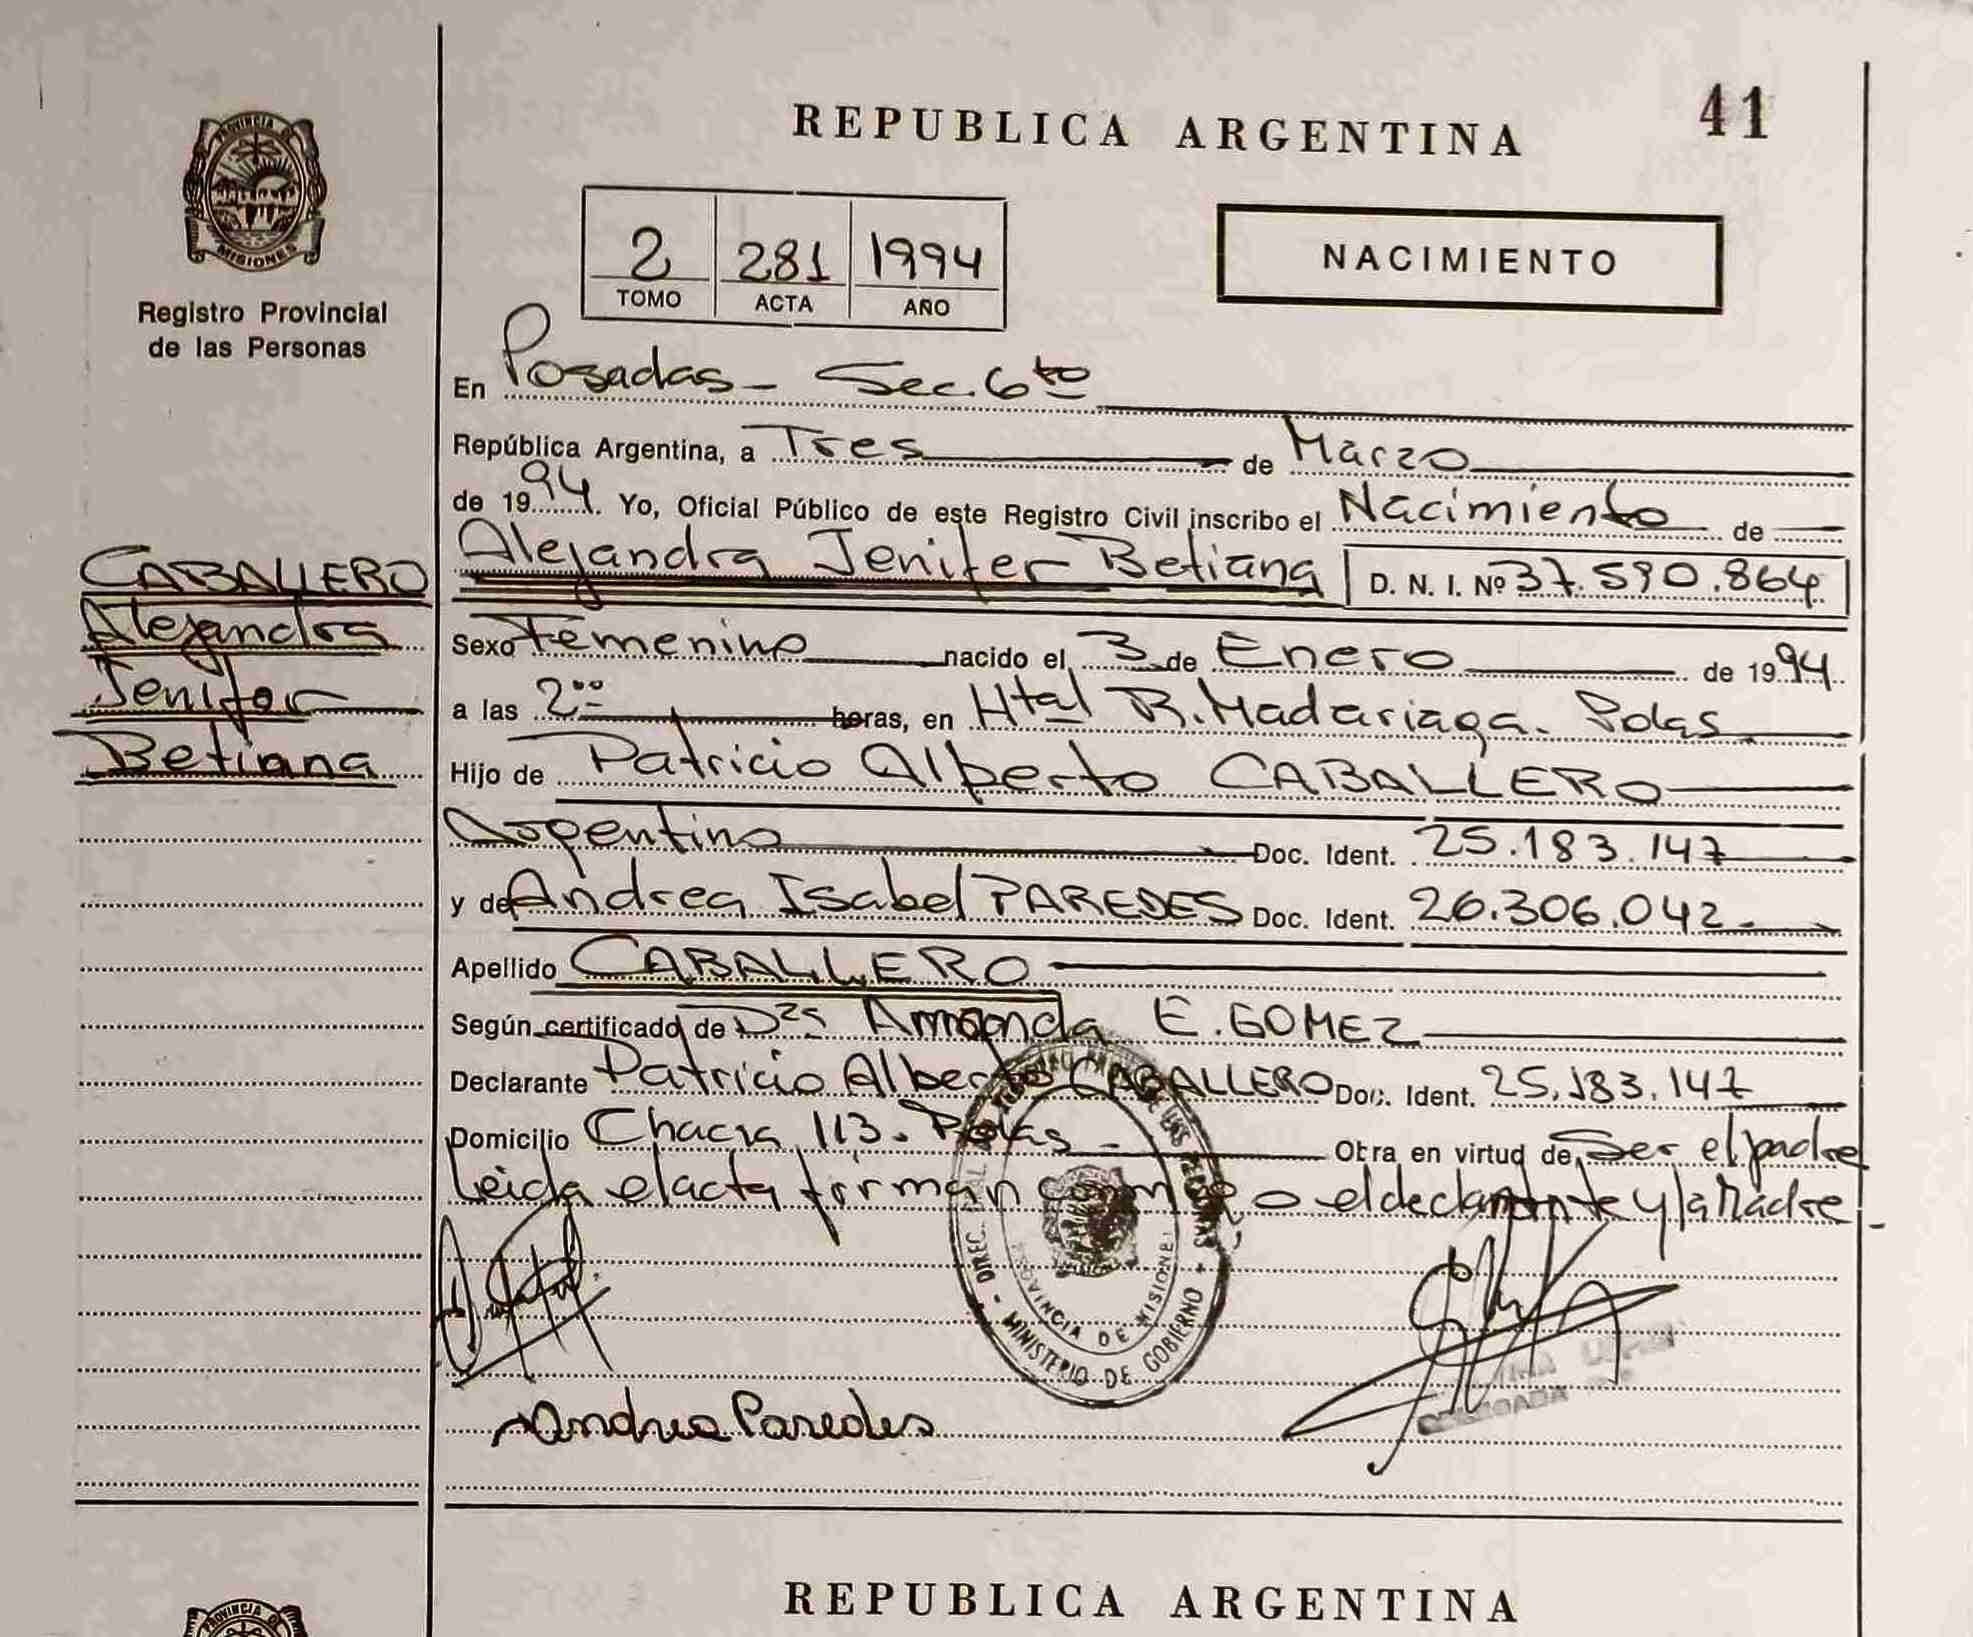 REPUBLICA ARGENTINA
41
PROVINCIA DE
MISIONES
Registro Provincial
de las Personas
2 281 1994
TOMO ACTA AÑO
NACIMIENTO
En Posadas - Sec. 6to
República Argentina, a Tres de Marzo
de 1994. Yo, Oficial Público de este Registro Civil inscribo el Nacimiento de
CABALLERO
Alejandra
Jenifer
Betiana
Alejandra Jenifer Betiana D. N. I. Nº 37.590.864
Sexo Femenino nacido el 3 de Enero de 1994.
a las 2:00 horas, en Htal R. Madariaga. Pdas
Hijo de Patricio Alberto CABALLERO
Argentino Doc. Ident. 25.183.147
y de Andrea Isabel PAREDES Doc. Ident. 26.306.042.
Apellido CABALLERO
Según certificado de Dra Armanda E. GOMEZ
Declarante Patricio Alberto CABALLERO Doc. Ident. 25.183.147
Domicilio Chacra 113. Pdas - Obra en virtud de Ser el padre
Leida el acta firman conmigo el declarante y la Madre.
DE LAS PERSONAS - MINISTERIO DE GOBIERNO - DIREC.
PROVINCIA DE MISIONES
Andrea Paredes
DELEGADA
REPUBLICA ARGENTINA
PROVINCIA D